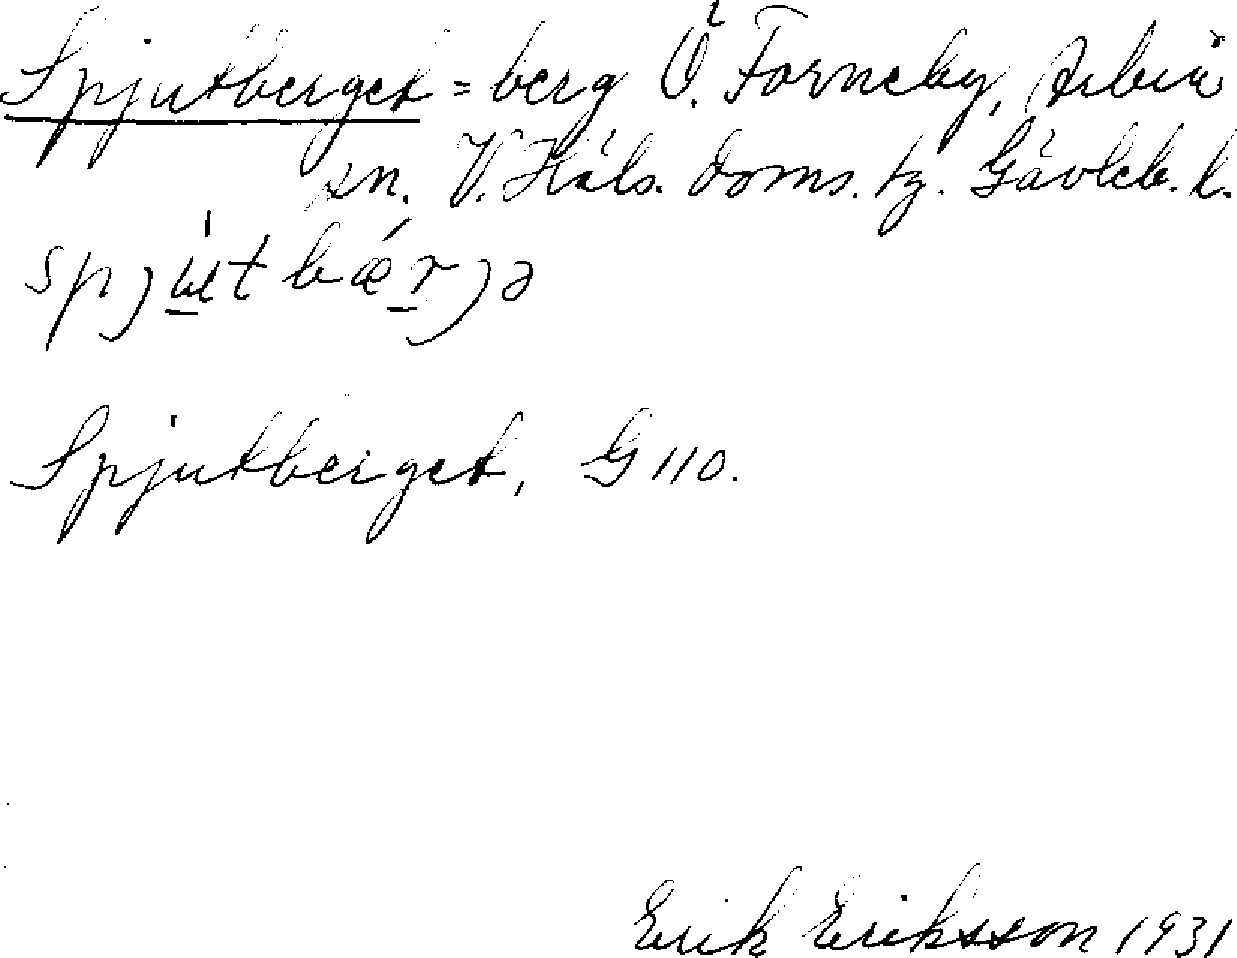 Spjutberget = berg Ö. Forneby, Arbrå
sn. V. Häls. doms. tg. Gävleb. l.
spjutbærjə
Spjutberget, G 110.
Erik Eriksson 1931